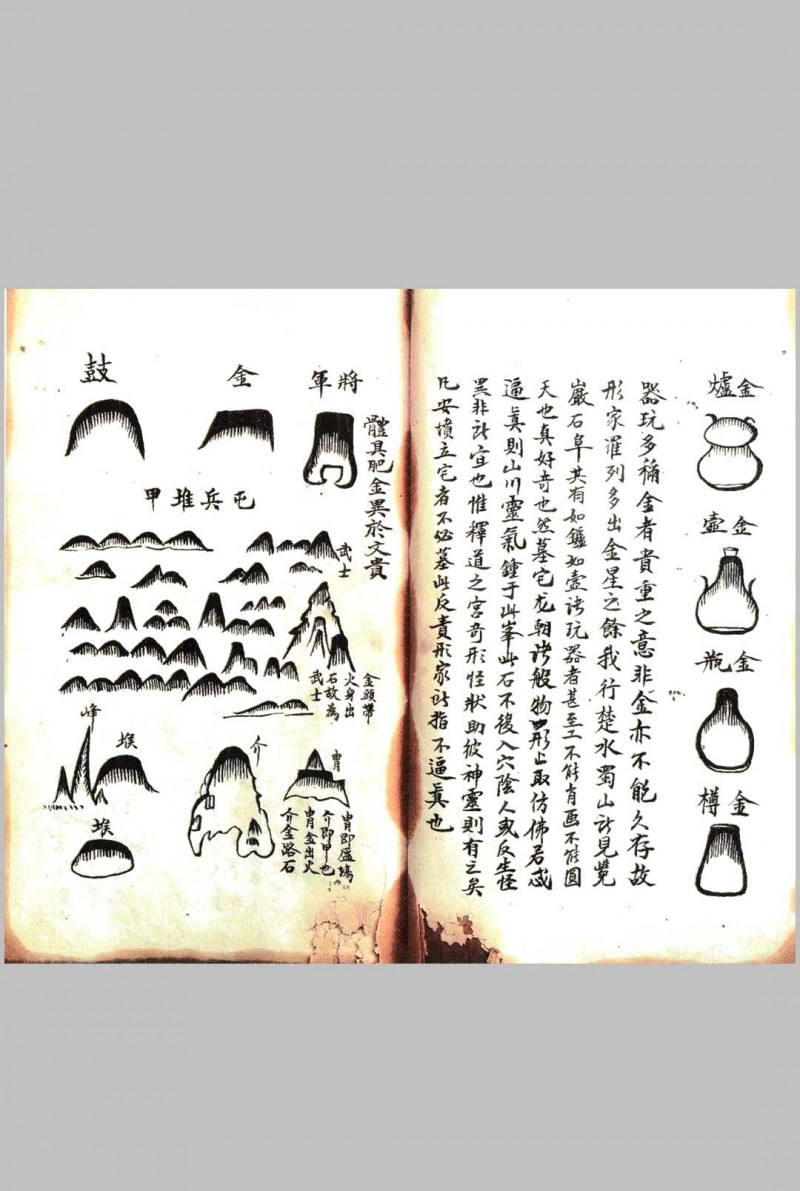 金爐
金壺
金瓶
金樽
器玩多稱金者貴重之意非金亦不能久存故
形家羅列多出金星之餘我行楚水蜀山所見覽
巖石阜其有如鑪如壺諸玩器者甚至工不能肖画不能圖
天也真好奇也然墓宅龙朝諸般物形止取仿佛若或
逼眞則山川靈氣鍾于此峯此石不後入穴陰人或反生怪
異非所宜也惟釋道之宮奇形怪狀助彼神靈則有之矣
凡安墳立宅者不必慕此反責形家所指不逼眞也
將軍
體具肥金異於文貴
金
鼓
屯兵堆甲
武士
金頭帶
火身出
石故為
武士
胄
胄即盔塢
介即甲也
胄金出火
介金路石
介
堠
峰
堆